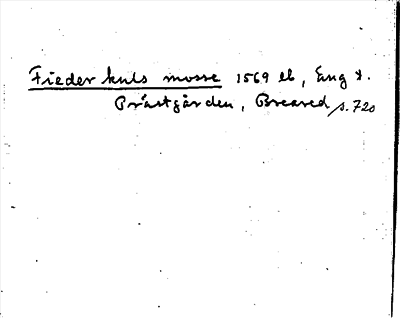 Fieder kuls mosse 1569 eb, Eng t.
Prästgården, Breared s. 720